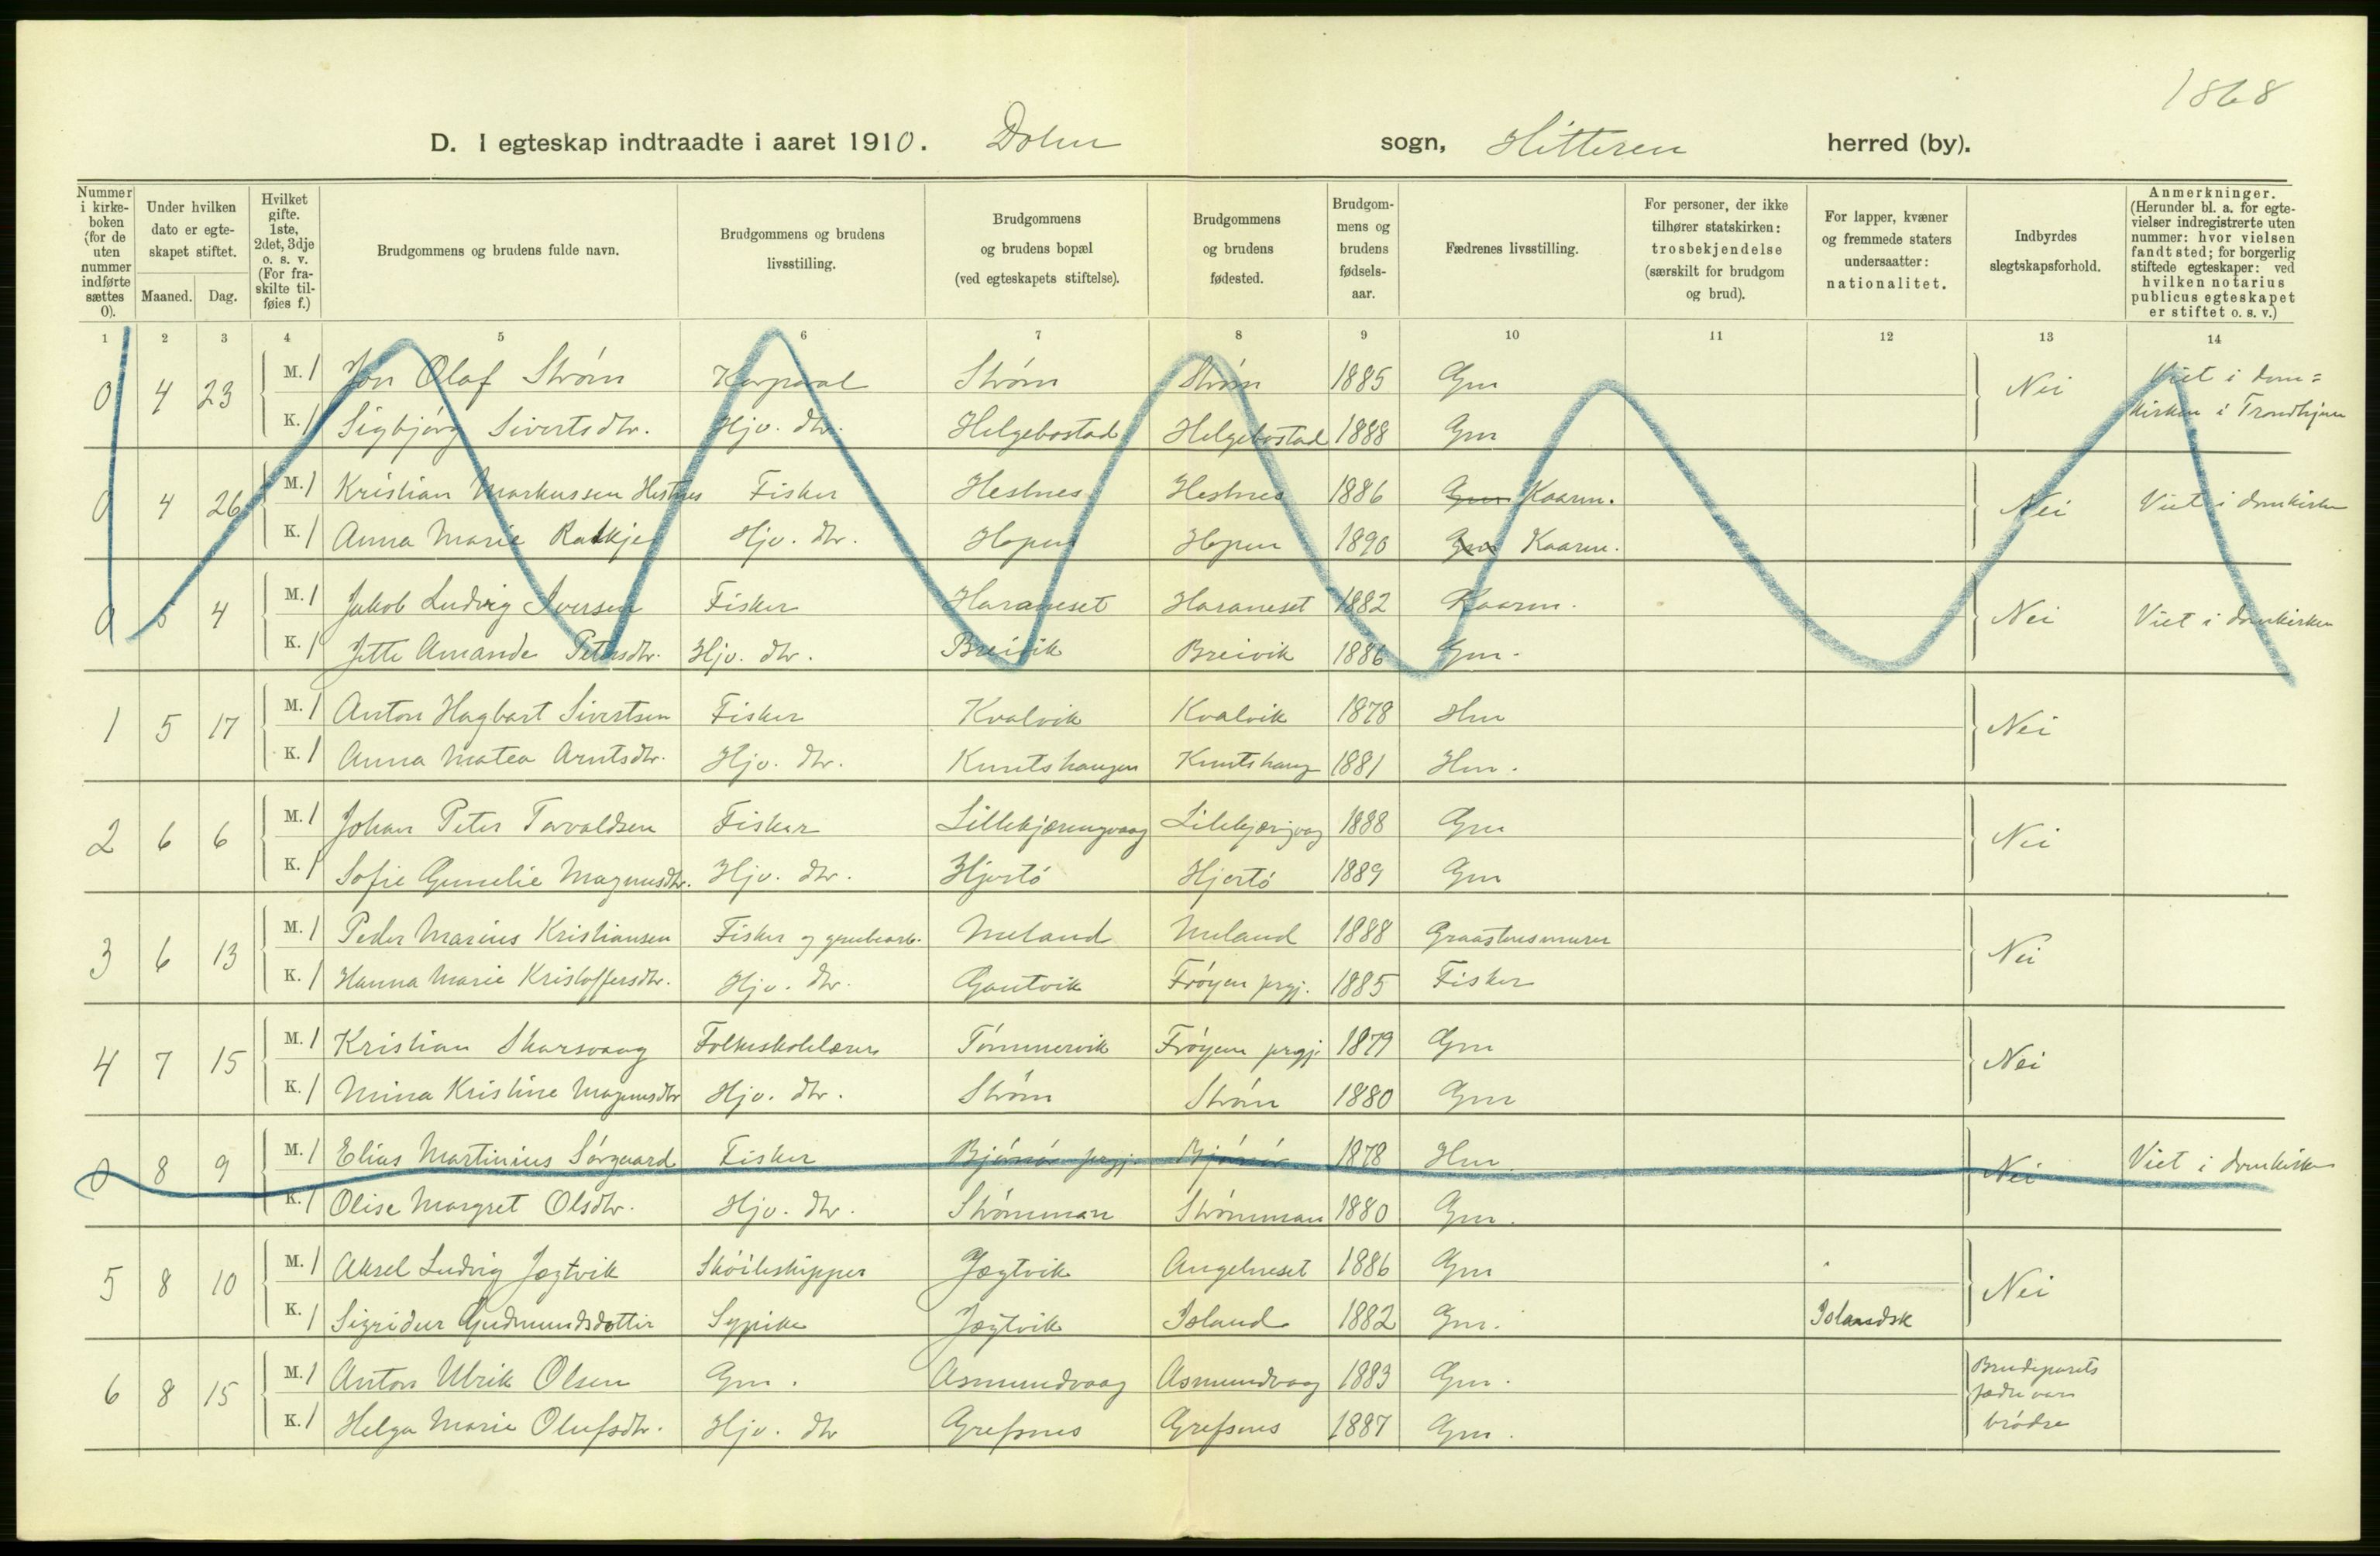 1868
D. I egteskap indtraadte i aaret 1910. Dolm sogn, Hitteren herred (by).
Nummer i kirkeboken (for de uten nummer indførte sættes 0).
Under hvilken dato er egteskapet stiftet.
Maaned. Dag.
Hvilket gifte. 1ste, 2det, 3dje o. s. v. (For fraskilte tilføies f.)
Brudgommens og brudens fulde navn.
Brudgommens og brudens livsstilling.
Brudgommens og brudens bopæl (ved egteskapets stiftelse).
Brudgommens og brudens fødested.
Brudgommens og brudens fødselsaar.
Fædrenes livsstilling.
For personer, der ikke tilhører statskirken: trosbekjendelse (særskilt for brudgom og brud).
For lapper, kvæner og fremmede staters undersaatter: nationalitet.
Indbyrdes slegtskapsforhold.
Anmerkninger. (Herunder bl. a. for egtevielser indregistrerte uten nummer: hvor vielsen fandt sted; for borgerlig stiftede egteskaper: ved hvilken notarius publicus egteskapet er stiftet o. s. v.)
1 2 3 4 5 6 7 8 9 10 11 12 13 14
0 4 23 M. 1 Jon Olaf Strøm Korporal Strøm Strøm 1885 Gm Nei Viet i dom=kirken i Trondhjem
K. 1 Sigbjørg Sivertsdtr. Hjv. dtr. Helgebostad Helgebostad 1888 Gm
0 4 26 M. 1 Kristian Markussen Hestnes Fisker Hestnes Hestnes 1886 Gm Kaarm. Nei Viet i domkirken
K. 1 Anna Marie Hjv. dtr. Hopen Hopen 1890 Kaarm.
0 5 4 M. 1 Jakob Ludvig Iversen Fisker Haraneset Haraneset 1882 Kaarm. Nei Viet i domkirken
K. 1 Jette Amanda Petersdtr. Hjv. dtr. Breivik Breivik 1886 Gm.
1 5 17 M. 1 Anton Hagbart Sivertsen Fisker Kvalvik Kvalvik 1878 Hm Nei
K. 1 Anna Matea Arntsdtr. Hjv. dtr. Kuntshaugen Kuntshaug 1881 Hm.
2 6 6 M. 1 Johan Peter Torvaldsen Fisker 1888 Gm Nei
K. 1 Sofie Gunelie Magnusdtr. Hjv. dtr. Hjertø Hjertø 1889 Gm
3 6 13 M. 1 Peder Marius Kristiansen Fisker og grubearb. Meland Meland 1888 Graastensmurer Nei
K. 1 Hanna Marie Kristoffersdtr. Hjv. dtr. Gautvik Frøyen prgj. 1885 Fisker
4 7 15 M. 1 Kristian Skarsvaag Folkeskolelærer Tømmervik Frøyen prgj. 1879 Gm Nei
K. 1 Mina Kristine Magnusdtr Hjv. dtr. Strøm Strøm 1880 Gm
0 8 9 M. 1 Elias Martinius Sørgaard Fisker Bjørnør prgj. Bjørnør 1878 Hm. Nei Viet i domkirken
K. 1 Olise Margret Olsdtr. Hjv. dtr. Strømman Strømman 1880 Gm.
5 8 10 M. 1 Aksel Ludvig Jægtvik Skøiteskipper Jægtvik 1886 Gm Nei
K. 1 Sigridur Gudmundsdottir Sypike Jægtvik Island 1882 Gm. Islandsk
6 8 15 M. 1 Anton Ulrik Olsen Gm. Asmundvaag Asmundvaag 1883 Gm. Brudeparets fædre var brødre
K. 1 Helga Marie Olufsdtr. Hjv. dtr Grefsnes Grefsnes 1887 Gm.